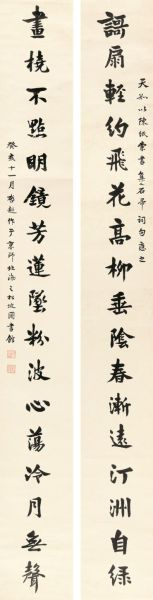 謌扇輕約飛花高柳垂陰春漸遠汀洲自綠
以陳紙索書集石帚詞句應之
畫橈不點明鏡芳蓮墜粉波心蕩冷月無聲
癸亥十一月啟超作于京師北海之松坡圖書館